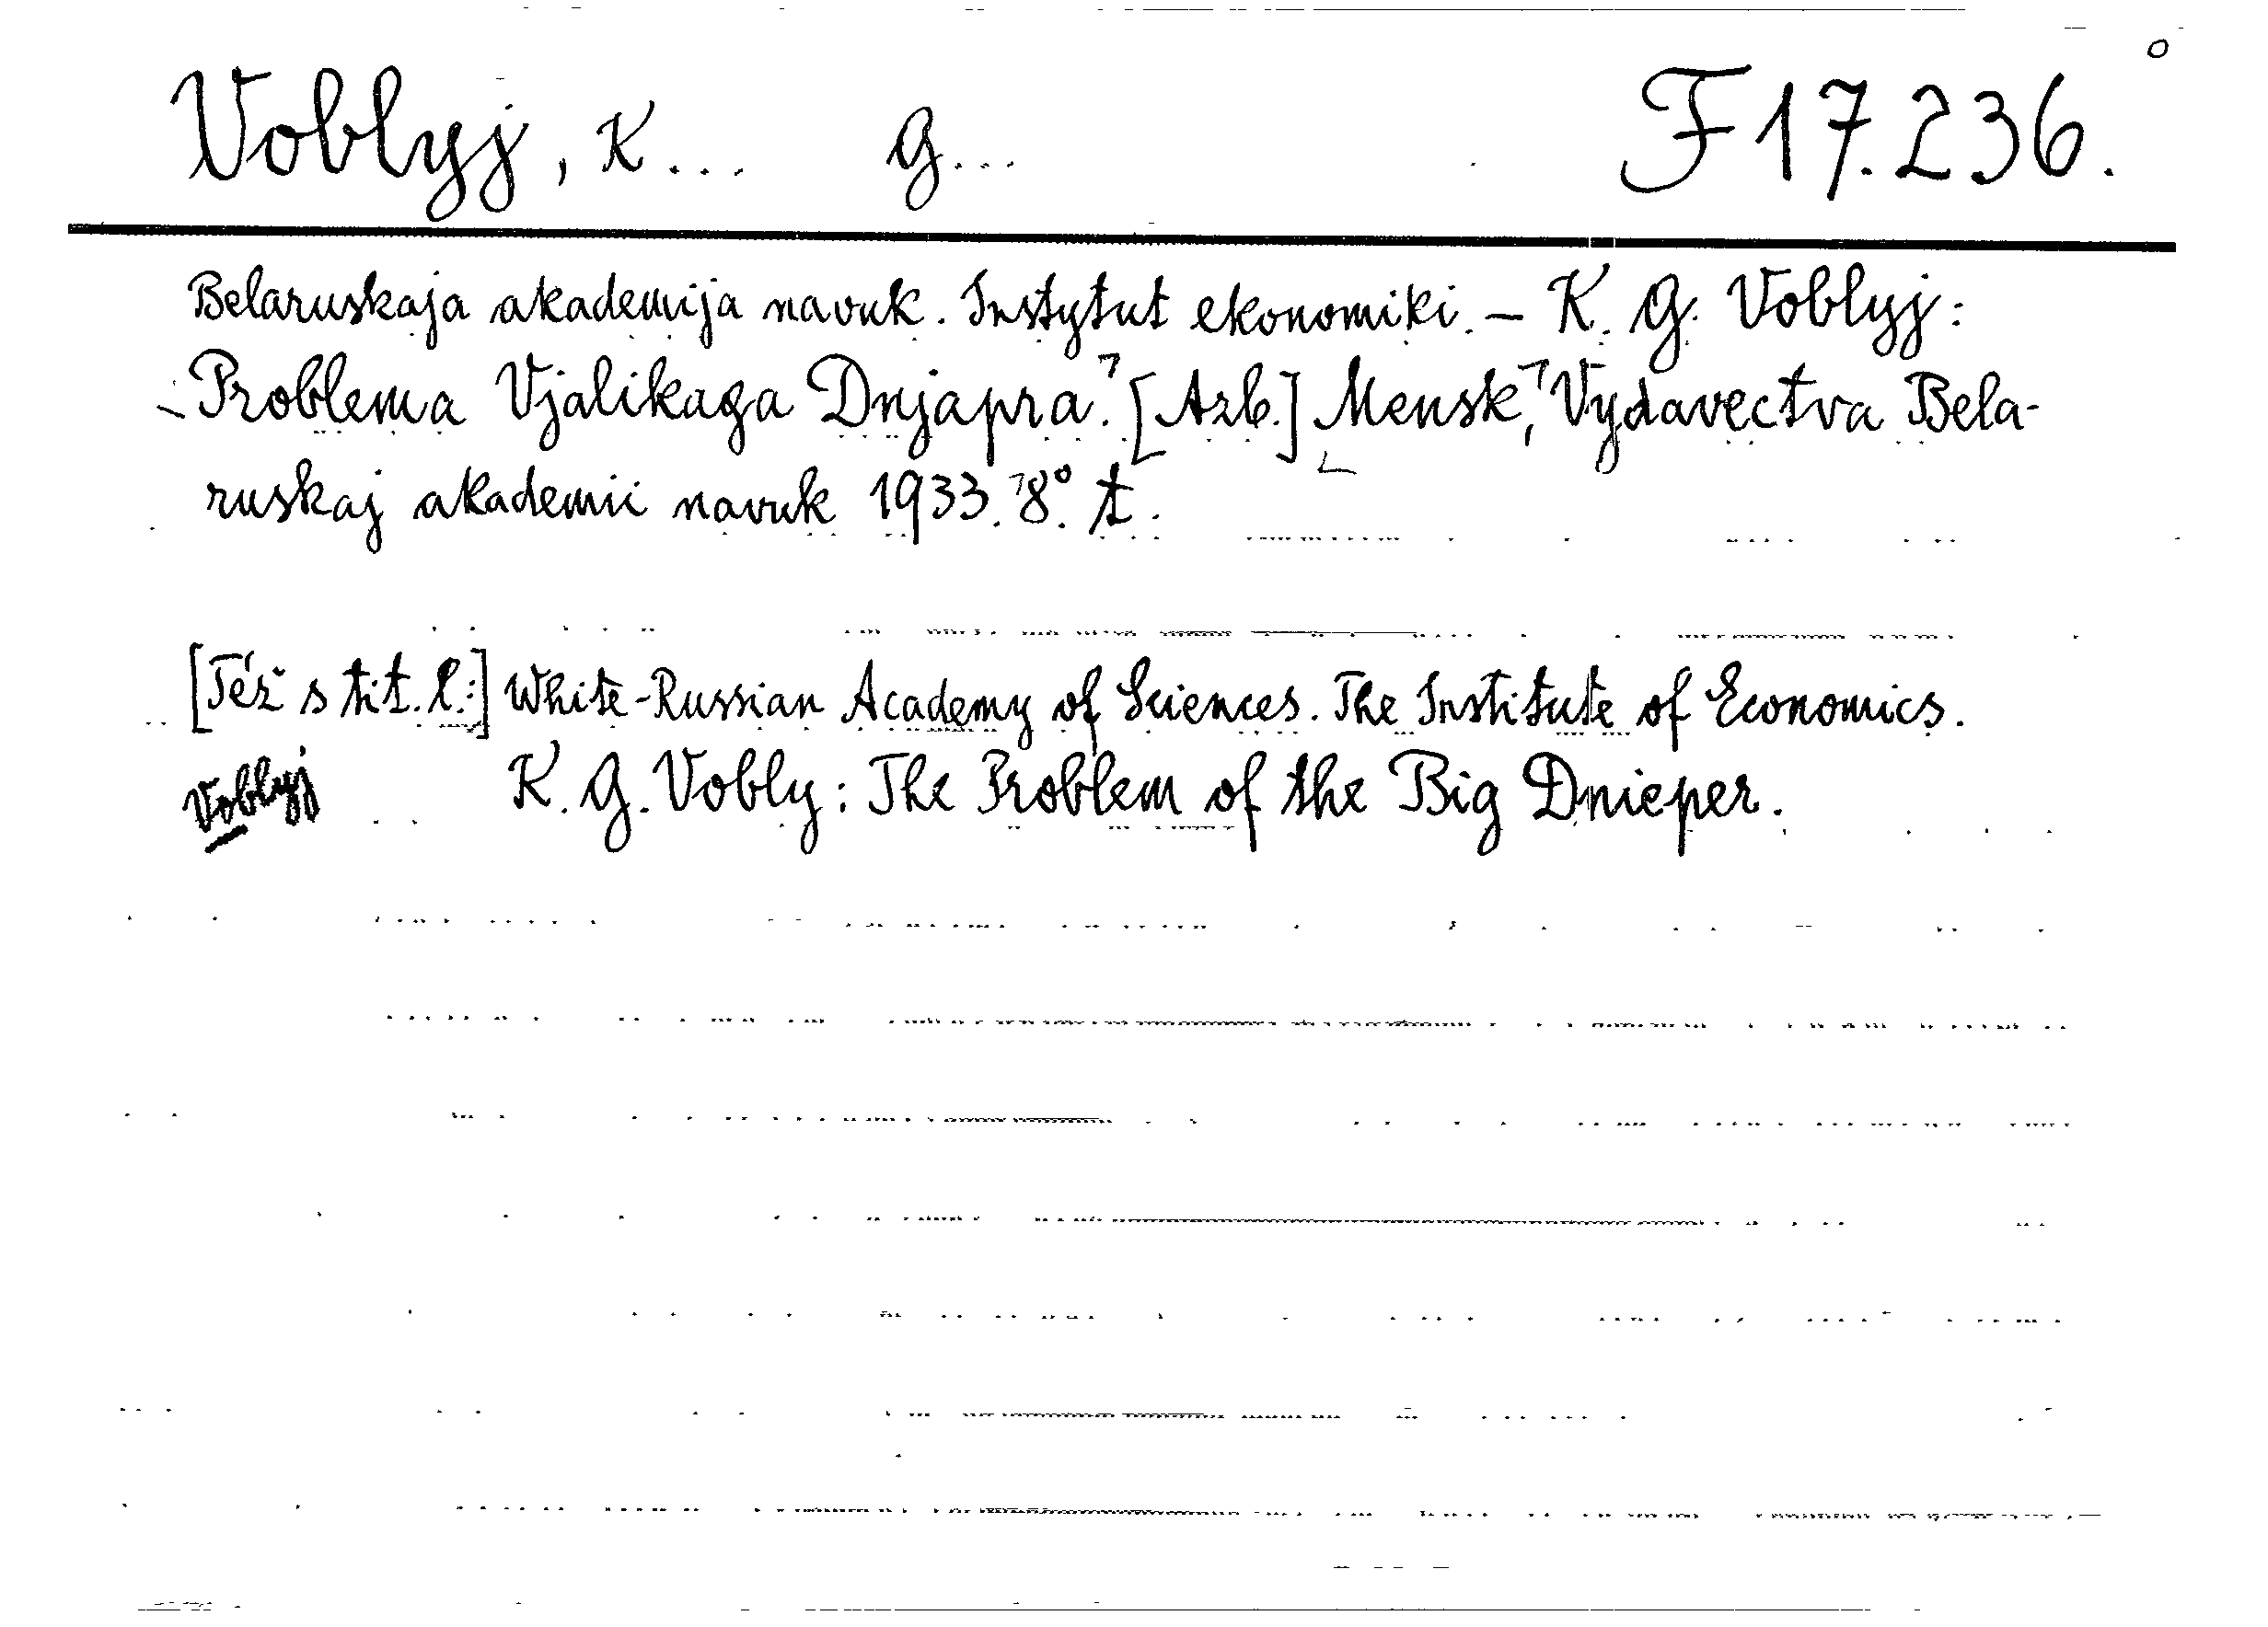 Voblyj, K... G... F 17.236.
Belaruskaja akademija navuk. Instytut ekonomiki. – K. G. Voblyj:
Problema Vjalikaga Dnjapra. [Azb.] Mensk, Vydavectva Bela-
ruskaj akademii navuk 1933. 8°. t.
[Též s tit. l.:] White-Russian Academy of Sciences. The Institute of Economics.
Voblyj K. G. Vobly: The Problem of the Big Dnieper.